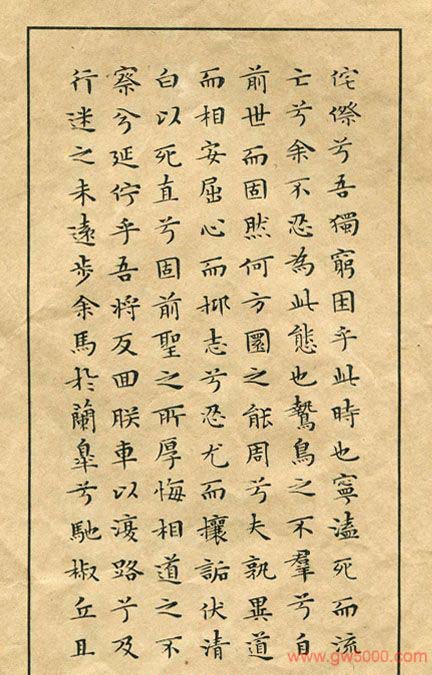 侘傺兮吾獨窮困乎此時也寧溘死而流
亡兮余不忍為此態也鷙鳥之不羣兮自
前世而固然何方圜之能周兮夫孰異道
而相安屈心而抑志兮忍尤而攘詬伏清
白以死直兮固前聖之所厚悔相道之不
察兮延佇乎吾將反回朕車以復路兮及
行迷之未遠步余馬於蘭皐兮馳椒丘且
www.gw5000.com